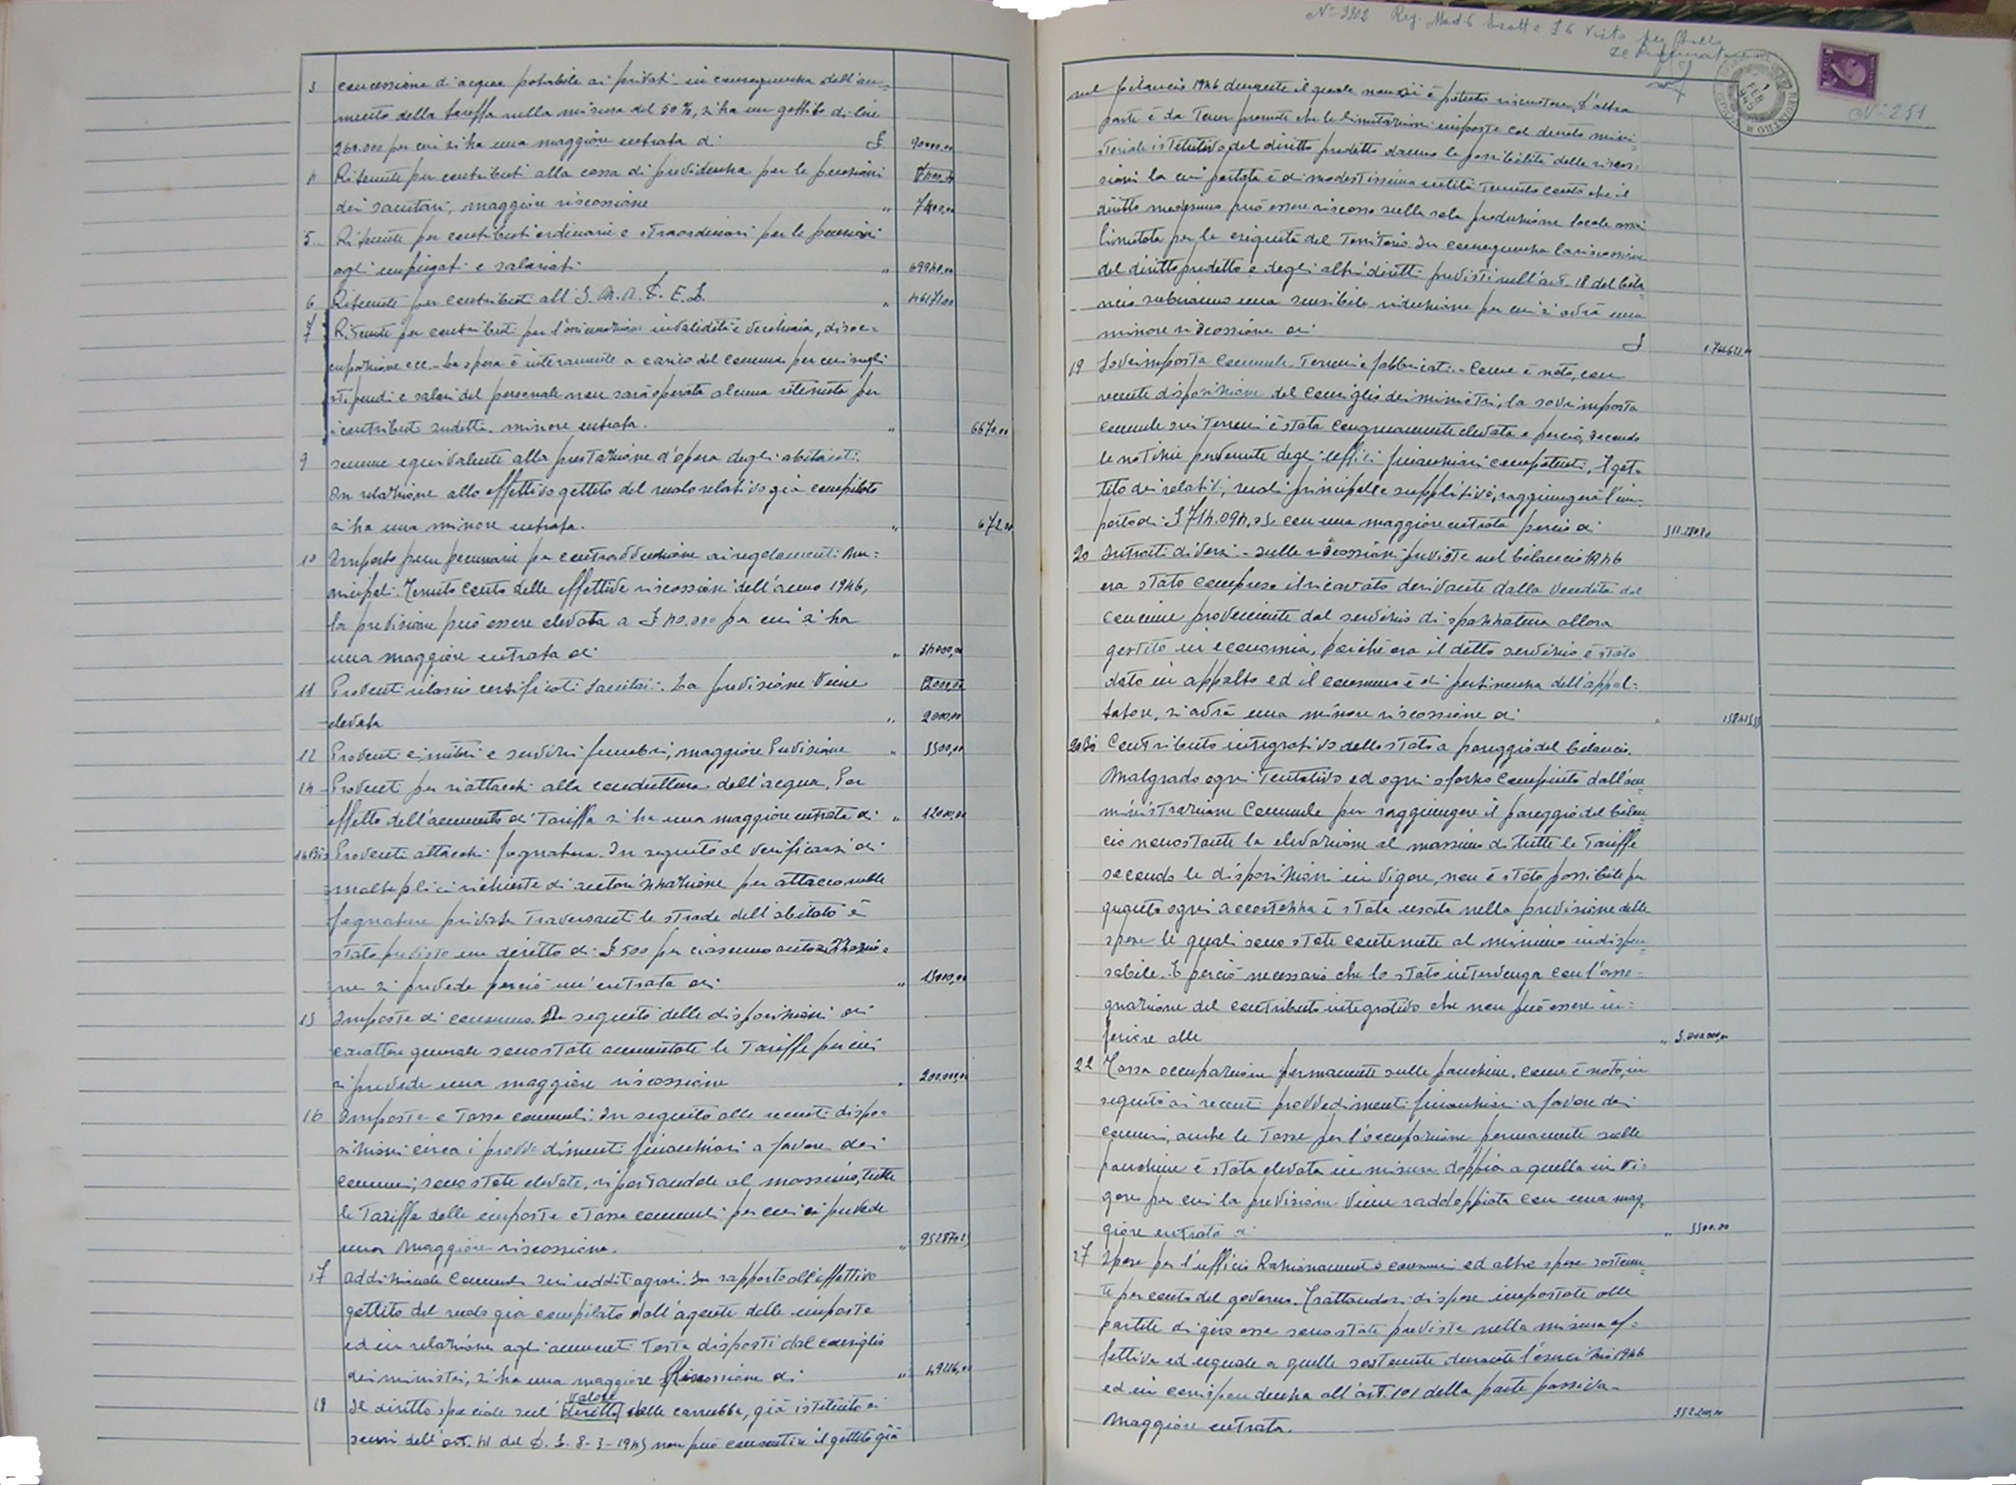 3 concessione di acqua potabile ai privati in conseguenza dell'au=
mento della tariffa nella misura del 50%, si ha un gettito di lire
260.000 per cui si ha una maggiore entrata di £ 90000,00
4 Ritenute per contributi alla cassa di previdenza per le pensioni
dei sanitari, maggiore riscossione " 7400,00
5 Ritenute per contributi ordinari e straordinari per le pensioni
agli impiegati e salariati " 69940.00
6 Ritenute per contributi all'I.N.A.D.E.L. "
7 Ritenute per contributi per l'assicurazione invalidità e vecchiaia, disoc=
cupazione ecc. La spesa è interamente a carico del Comune per cui sugli
stipendi e salari del personale non sarà operata alcuna ritenuta per
i contributi sudetti. minore entrata. " 6670.00
9 somme equivalente alla prestazione d'opera degli abitanti.
In relazione allo effettivo gettito del ruolo relativo già compilato
si ha una minore entrata. " 672.00
10 Importo pene pecuniarie per contravvenzione ai regolamenti Mu=
nicipali. Tenuto conto delle effettive riscossioni dell'anno 1946,
la previsione può essere elevata a £ 40.000 per cui si ha
una maggiore entrata di " 34000,00
11 Proventi rilascio certificati sanitari. La previsione viene
elevata " 2000,00
12 Proventi cimiteri e servizi funebri, maggiore Previsione " 5500,00
14 Proventi per riattacchi alla conduttura dell'acqua. Per
effetto dell'aumento di Tariffa si ha una maggiore entrata di " 12000,00
14 Bis Proventi attacchi fognatura. In seguito al verificarsi di
molteplici richieste di autorizzazione per attacco nelle
fognature private traversanti le strade dell'abitato è
stato previsto un diritto di £ 500 per ciascuna autorizzazio=
ne si prevede perciò un'entrata di " 15000,00
15 Imposte di consumo. In seguito delle disposizioni di
carattere generale sono state aumentate le Tariffe per cui
si prevede una maggiore riscossione " 200.000,00
16 Imposte e Tasse comunali. In seguito alle recenti dispo=
sizioni circa i provvedimenti finanziari a favore dei
comuni, sono state elevate, riportandole al massimo, tutte
le Tariffe delle imposte e Tasse comunali per cui si prevede
una maggiore riscossione. "
17 Addizionale Comunale sui redditi agrari. In rapporto all'effettivo
gettito del ruolo già compilato dall'agente delle imposte
ed in relazione agli aumenti testè disposti dal consiglio
dei ministri, si ha una maggiore Riscossione di "
18 Il diritto speciale sul valore delle carrubbe, già istituito ai
sensi dell'art. 41 del D.L. 8-3-1945 non può consentire il gettito già
N° 3302 Reg. Mod. 6 Esatte £ 6 Visto per bollo
N° 251
sul bilancio 1946 durante il quale nonsi è potuto riscuotere. D'altra
parte è da tener presente che le limitazioni imposte col decreto mini=
steriale istitutivo del diritto predetto danno la possibilità delle riscos=
sioni la cui portata è di modestissima entità Tenuto conto che il
diritto medesimo può essere riscosso sulla sola produzione locale assai
limitata per la esiguità del Territorio. In conseguenza la riscossione
del diritto predetto e degli altri diritti previsti nell'art. 18 del bila=
ncio subiranno una sensibile riduzione per cui si avrà una
minore riscossione di £
19 Sovrimposta Comunale Terreni e fabbricati. Come è noto, con
recente disposizione del Consiglio dei ministri, la sovrimposta
comunale sui Terreni è stata congruamente elevata e perciò, secondo
le notizie pervenute dagli Uffici finanziari competenti, il get=
tito dei relativi, ruoli principali e suppletivi, raggiungerà l'im=
porto di con una maggiore entrata perciò di
20 Introiti diversi. Sulle riscossioni previste nel bilancio 1946
era stato compreso il ricavato derivante dalla vendita del
concime proveniente dal servizio di spazzatura allora
gestito in economia, poichè ora il detto servizio è stato
dato in appalto ed il concime è di pertinenza dell'appal=
tatore, si avrà una minore riscossione di "
20 Bis Contributo integrativo dello stato a pareggio del bilancio.
Malgrado ogni Tentativo ed ogni sforzo compiuto dall'am=
ministrazione Comunale per raggiungere il pareggio del bilan=
cio nonostante la elevazione al massimo di tutte le Tariffe
secondo le disposizioni in vigore, non è stato possibile per
quanto ogni accortezza è stata usata nella previsione delle
spese le quali sono state contenute al minimo indispen=
sabile. È perciò necessario che lo stato intervenga con l'asse=
gnazione del contributo integrativo che non può essere in=
feriore alle " 3.000.000,00
22 Tassa occupazione permanente sulle panchine. Come è noto, in
seguito ai recenti provvedimenti finanziari a favore dei
comuni, anche le Tasse per l'occupazione permanente sulle
panchine è stata elevata in misura doppia a quella in vi=
gore per cui la previsione viene raddoppiata con una mag=
giore entrata di " 5500.00
27 Spese per l'ufficio Razionamento consumi ed altre spese sostenu=
te per conto del governo. Trattandosi di spese impostate alle
partite di giro esse sono state previste nella misura ef=
fettiva ed eguale a quelle sostenute durante l'esercizio 1946
ed in corrispondenza all'art. 101 della parte passiva.
Maggiore entrata. 552.200,00